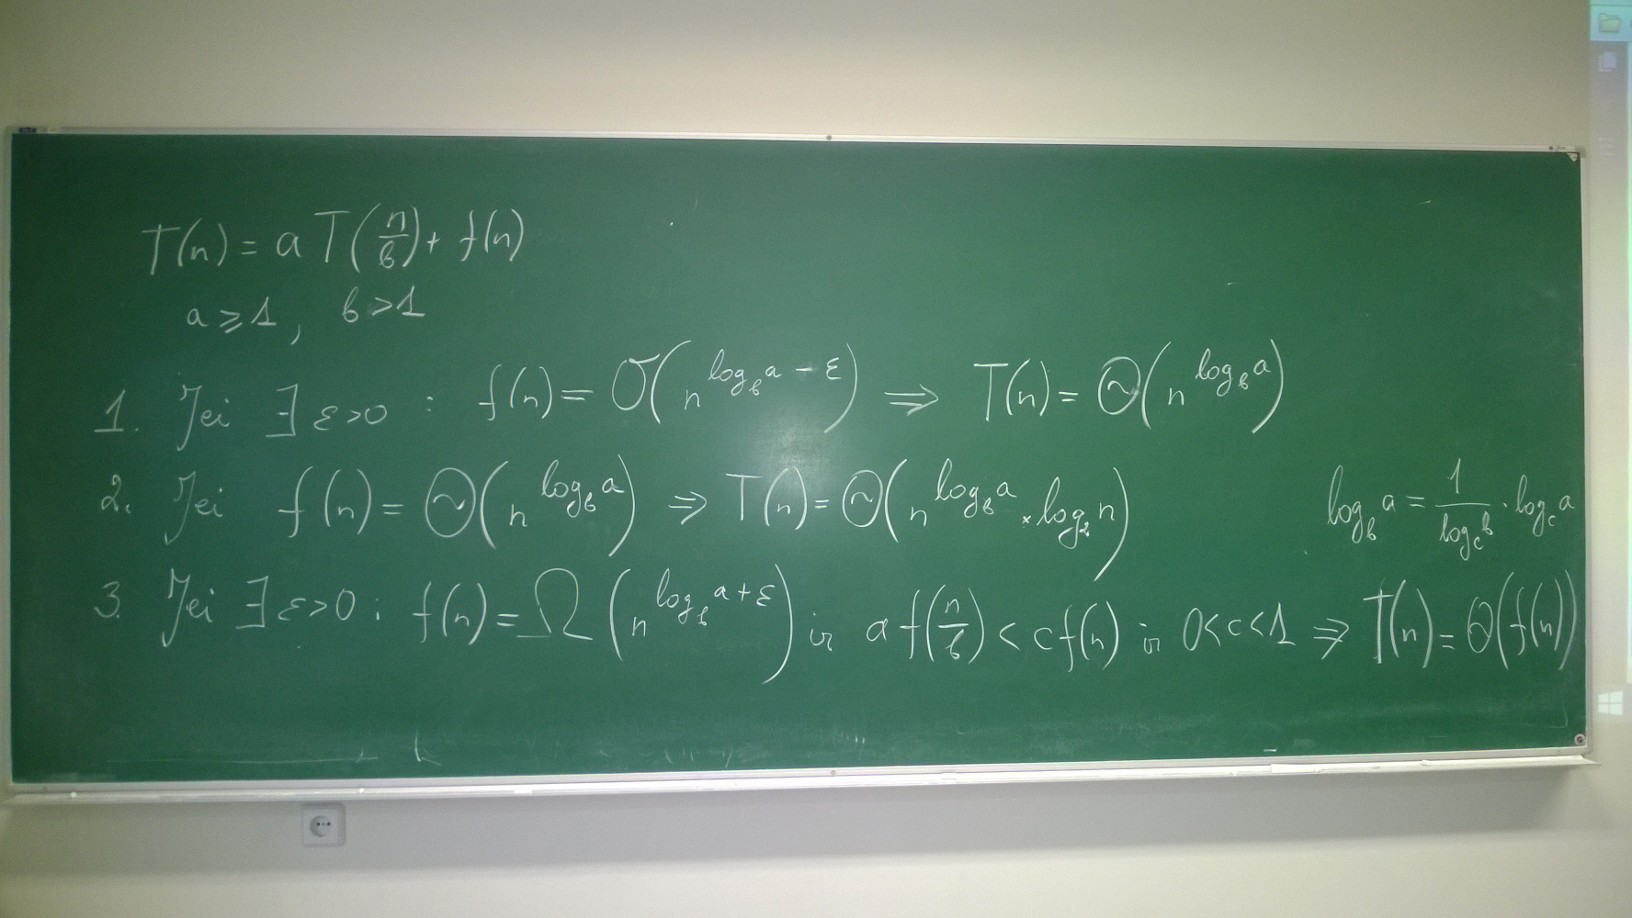 T(n) = a T(n/b) + f(n)
a ⩾ 1, b > 1
1. Jei ∃ ε>0 : f(n) = O(n^(log_b a - ε)) ⇒ T(n) = Θ(n^(log_b a))
2. Jei f(n) = Θ(n^(log_b a)) ⇒ T(n) = Θ(n^(log_b a) × log_2 n)
log_b a = 1/(log_c b) · log_c a
3. Jei ∃ ε>0 : f(n) = Ω(n^(log_b a + ε)) ir a f(n/b) < c f(n) ir 0<c<1 ⇒ T(n) = Θ(f(n))